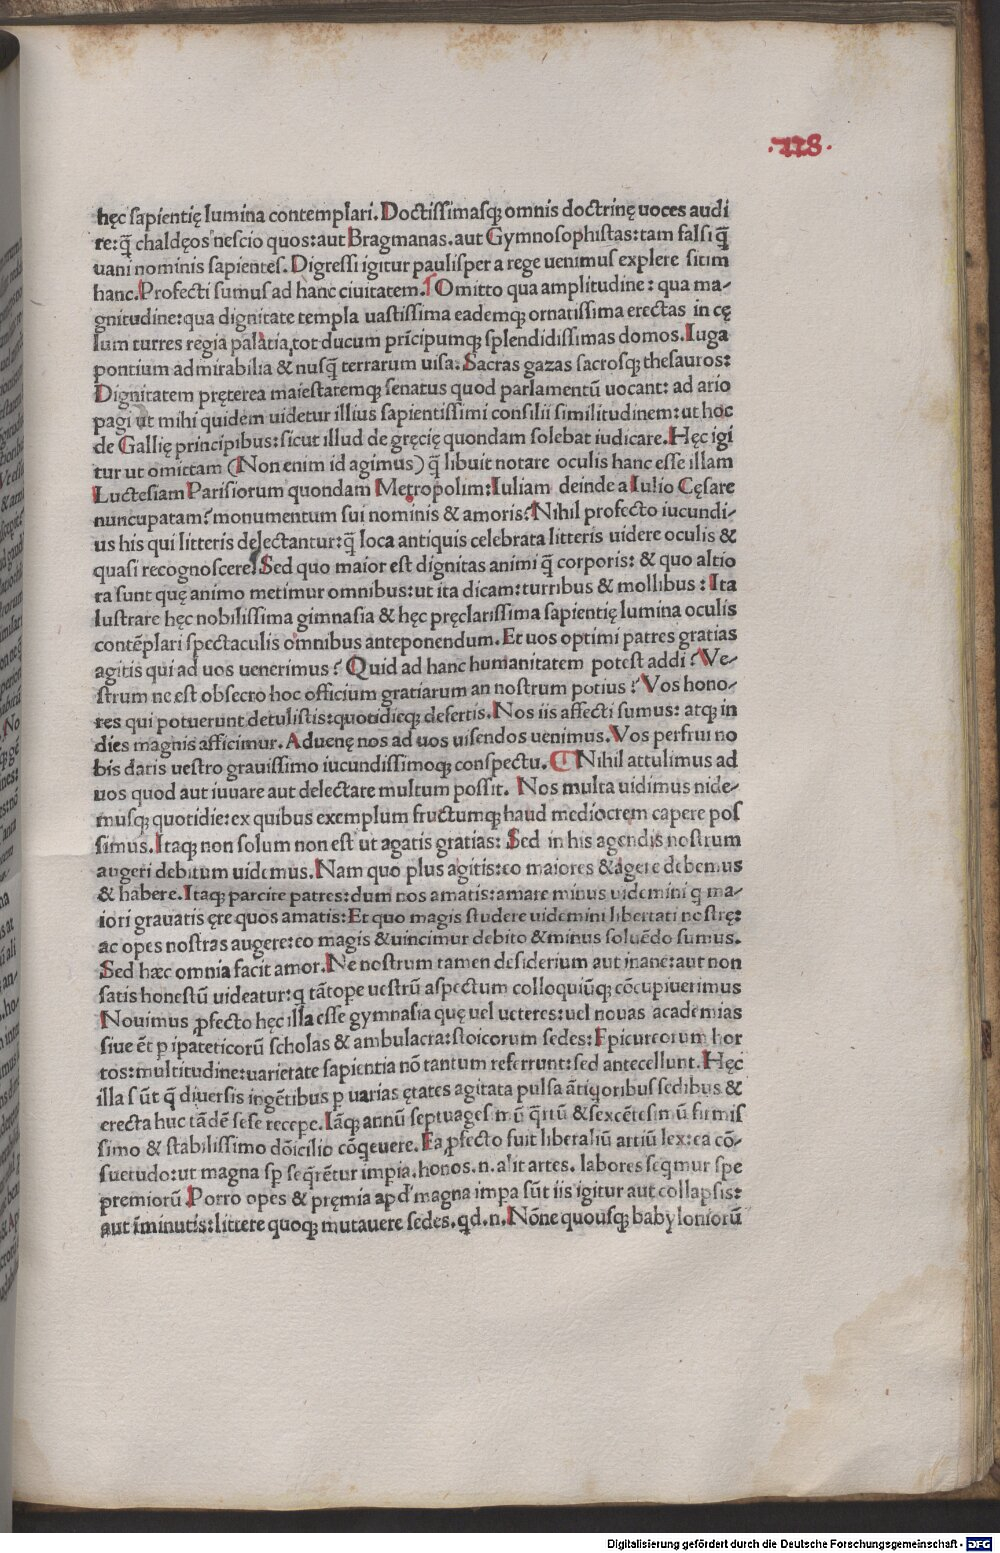 ·118·
hęc sapientię lumina contemplari. Doctissimasq; omnis doctrinę uoces audi
re: q̃ chaldęos nescio quos: aut Bragmanas. aut Gymnosophistas: tam falsi q̃
uani nominis sapientes. Digressi igitur paulisper a rege uenimus explere sitim
hanc. Profecti sumus ad hanc ciuitatem. Omitto qua amplitudine: qua ma-
gnitudine: qua dignitate templa uastissima eademq; ornatissima erectas in cę
lum turres regia palatia, tot ducum prīcipumq; splendidissimas domos. Iuga
pontium admirabilia & nusq̃ terrarum uisa: Sacras gazas sacrosq; thesauros:
Dignitatem pręterea maiestatemq; senatus quod parlamentū uocant: ad ario
pagi ut mihi quidem uidetur illius sapientissimi consilii similitudinem: ut hoc
de Gallię principibus: sicut illud de gręcię quondam solebat iudicare. Hęc igi
tur ut omittam (Non enim id agimus) q̃ libuit notare oculis hanc esse illam
Luctesiam Parisiorum quondam Metropolim: Iuliam deinde a Iulio Cęsare
nuncupatam? monumentum sui nominis & amoris? Nihil profecto iucundi-
us his qui litteris delectantur: q̃ loca antiquis celebrata litteris uidere oculis &
quasi recognoscere? Sed quo maior est dignitas animi q̃ corporis: & quo altio
ra sunt quę animo metimur omnibus: ut ita dicam: turribus & mollibus: Ita
lustrare hęc nobilissima gimnasia & hęc pręclarissima sapientię lumina oculis
contēplari spectaculis omnibus anteponendum. Et uos optimi patres gratias
agitis qui ad uos uenerimus? Quid ad hanc humanitatem potest addi? Ve-
strum ne est obsecro hoc officium gratiarum an nostrum potius? Vos hono-
res qui potuerunt detulistis: quotidieq; defertis. Nos iis affecti sumus: atq; in
dies magnis afficimur. Aduenę nos ad uos uisendos uenimus. Vos perfrui no
bis datis uestro grauissimo iucundissimoq; conspectu. Nihil attulimus ad
uos quod aut iuuare aut delectate multum possit. Nos multa uidimus uide-
musq; quotidie: ex quibus exemplum fructumq; haud mediocrem capere pos
simus. Itaq; non solum non est ut agatis gratias: Sed in his agendis nostrum
augeri debitum uidemus. Nam quo plus agitis: eo maiores & agere debemus
& habere. Itaq; parcite patres: dum nos amatis: amare minus uidemini q ma-
iori grauatis ęre quos amatis: Et quo magis studere uidemini libertati nostrę:
ac opes nostras augere: eo magis & uincimur debito & minus soluēdo sumus.
Sed hæc omnia facit amor. Ne nostrum tamen desiderium aut inane: aut non
satis honestū uideatur: q tātope uestrū aspectum colloquiūq; cōcupiuerimus
Nouimus ꝓfecto hęc illa esse gymnasia quę uel ueteres: uel nouas academias
siue ēt p ipateticorū scholas & ambulacra: stoicorum sedes: Epicureorum hor
tos: multitudine: uarietate sapientia nō tantum referrunt: sed antecellunt. Hęc
illa sūt q̃ diuersis ingētibus p uarias ętates agitata pulsa ātiqoribus sedibus &
erecta huc tādē sese recepe. Iāq; annū septuagesimū q̄rtū & sexcētesimū firmis
simo & stabilissimo dōicilio cōqeuere. Ea ꝓfecto fuit liberaliū artiū lex: ea cō-
suetudo: ut magna sp seq̄rētur impia. honos. n. alit artes. labores seqmur spe
premiorū. Porro opes & pręmia apd' magna impa sūt iis igitur aut collapsis:
aut īminutis: littere quoq; mutauere sedes. qd. n. Nōne quousq; babyloniorū
Digitalisierung gefördert durch die Deutsche Forschungsgemeinschaft - DFG